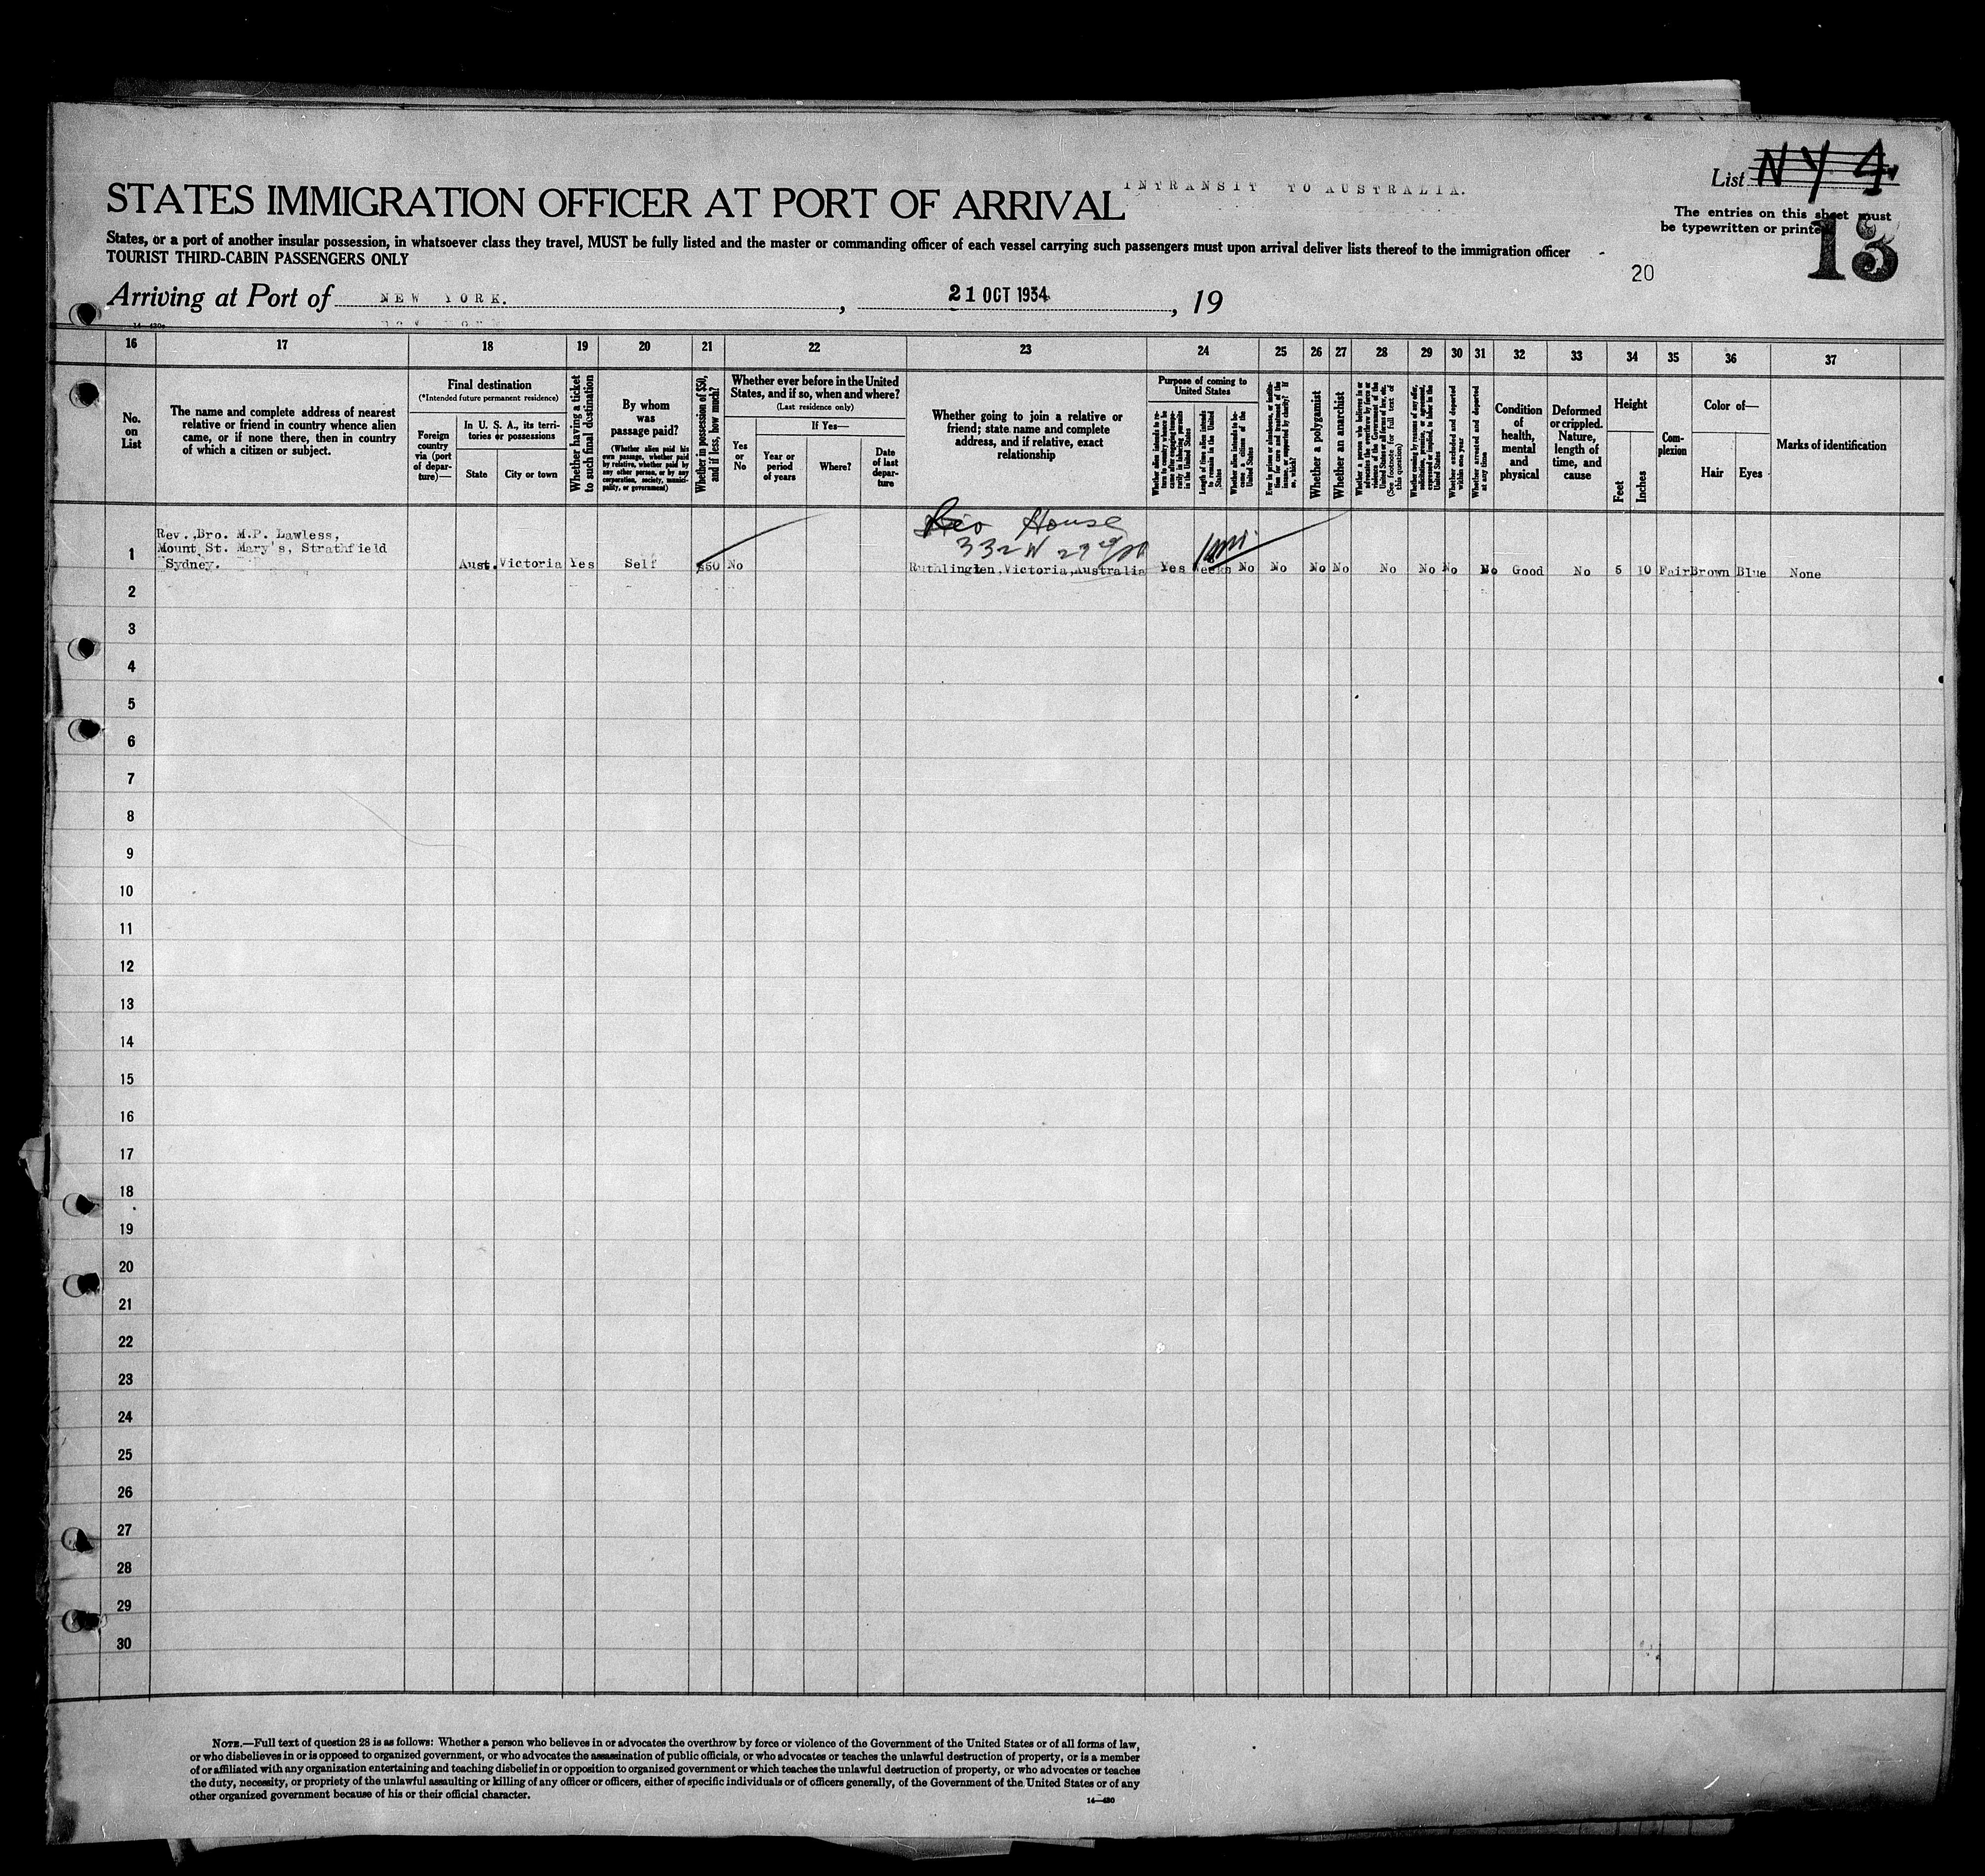 INTRANSIT TO AUSTRALIA.
List NY 4
STATES IMMIGRATION OFFICER AT PORT OF ARRIVAL
The entries on this sheet must
be typewritten or printed
13
States, or a port of another insular possession, in whatsoever class they travel, MUST be fully listed and the master or commanding officer of each vessel carrying such passengers must upon arrival deliver lists thereof to the immigration officer
TOURIST THIRD-CABIN PASSENGERS ONLY
20
Arriving at Port of NEW YORK. , 21 OCT 1934 , 19
16 17 18 19 20 21 22 23 24 25 26 27 28 29 30 31 32 33 34 35 36 37
No.
on
List
The name and complete address of nearest
relative or friend in country whence alien
came, or if none there, then in country
of which a citizen or subject.
Final destination
(*Intended future permanent residence)
Foreign
country
via (port
of depar-
ture)—
In U. S. A., its terri-
tories or possessions
State
City or town
Whether having a ticket
to such final destination
By whom
was
passage paid?
(Whether alien paid his
own passage, whether paid
by relative, whether paid by
any other person, or by any
corporation, society, munici-
pality, or government)
Whether in possession of $50,
and if less, how much?
Whether ever before in the United
States, and if so, when and where?
(Last residence only)
Yes
or
No
If Yes—
Year or
period
of years
Where?
Date
of last
depar-
ture
Whether going to join a relative or
friend; state name and complete
address, and if relative, exact
relationship
Purpose of coming to
United States
Whether alien intends to re-
turn to country whence he
came after engaging tempo-
rarily in laboring pursuits
in the United States
Length of time alien intends
to remain in the United
States
Whether alien intends to be-
come a citizen of the
United States
Ever in prison or almshouse, or institu-
tion for care and treatment of the
insane, or supported by charity? If
so, which?
Whether a polygamist
Whether an anarchist
Whether a person who believes in or
advocates the overthrow by force or
violence of the Government of the
United States or all forms of law, etc.
(See footnote for full text of
this question)
Whether coming by reason of any offer,
solicitation, promise, or agreement,
expressed or implied, to labor in the
United States
Whether excluded and deported
within one year
Whether arrested and deported
at any time
Condition
of
health,
mental
and
physical
Deformed
or crippled.
Nature,
length of
time, and
cause
Height
Feet
Inches
Com-
plexion
Color of—
Hair
Eyes
Marks of identification
House
332 W
Rev.,Bro. M.P. Lawless,
Mount St. Mary's, Strathfield
1 Sydney. Aust. Victoria Yes Self $50 No Victoria, Australia Yes weeks No No No No No No No No Good No 5 10 Fair Brown Blue None
2
3
4
5
6
7
8
9
10
11
12
13
14
15
16
17
18
19
20
21
22
23
24
25
26
27
28
29
30
NOTE.—Full text of question 28 is as follows: Whether a person who believes in or advocates the overthrow by force or violence of the Government of the United States or of all forms of law,
or who disbelieves in or is opposed to organized government, or who advocates the assassination of public officials, or who advocates or teaches the unlawful destruction of property, or is a member
of or affiliated with any organization entertaining and teaching disbelief in or opposition to organized government or which teaches the unlawful destruction of property, or who advocates or teaches
the duty, necessity, or propriety of the unlawful assaulting or killing of any officer or officers, either of specific individuals or of officers generally, of the Government of the United States or of any
other organized government because of his or their official character.
14—430